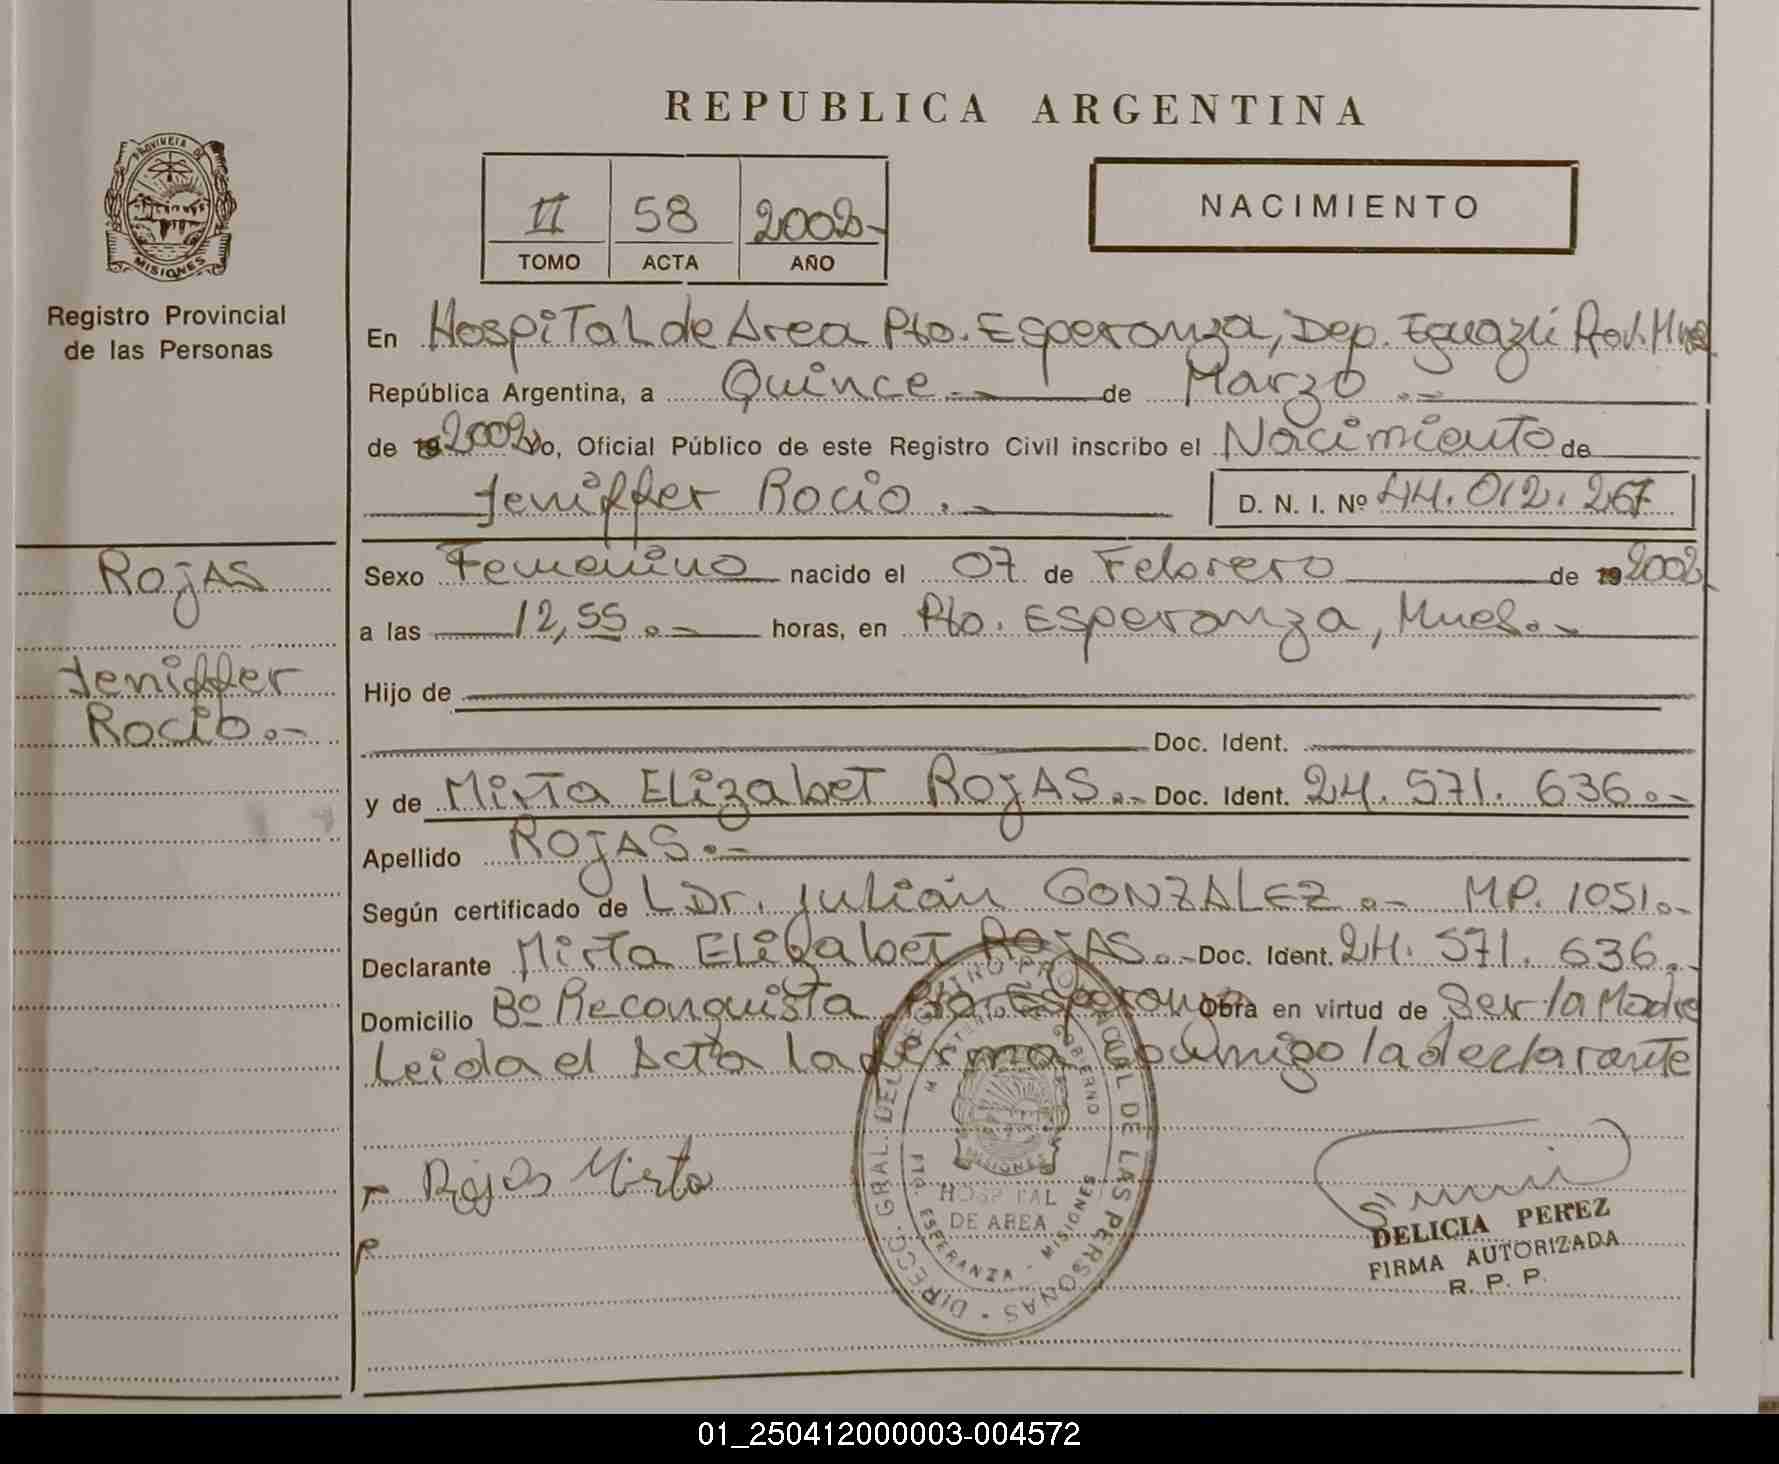 REPUBLICA ARGENTINA
PROVINCIA DE
MISIONES
Registro Provincial
de las Personas
II 58 2002-
TOMO ACTA AÑO
NACIMIENTO
En Hospital de Area Pto. Esperanza, Dep. Iguazú Prov. Mnes
República Argentina, a Quince.- de Marzo.-
de 19 2002 Yo, Oficial Público de este Registro Civil inscribo el Nacimiento de
Jeniffer Rocio.- D. N. I. Nº 44.012.267
Rojas
Jeniffer
Rocio.-
Sexo Femenino nacido el 07 de Febrero de 19 2002
a las 12,55.- horas, en Pto. Esperanza, Mnes.-
Hijo de
Doc. Ident.
y de Mirta Elizabet Rojas.- Doc. Ident. 24.571.636.-
Apellido ROJAS.-
Según certificado de L Dr. Julián GONZALEZ.- M.P. 1051.-
Declarante Mirta Elizabet Rojas.- Doc. Ident. 24.571.636.-
Domicilio Bº Reconquista Pto. Esperanza Obra en virtud de Ser la Madre
Leida el Acta la firma conmigo la declarante
Rojas Mirta
DIRECC. GRAL. DEL REGISTRO PROVINCIAL DE LAS PERSONAS
MINISTERIO DE GOBIERNO
MISIONES
HOSPITAL
DE AREA
PTO. ESPERANZA - MISIONES
DELICIA PEREZ
FIRMA AUTORIZADA
R. P. P.
01_250412000003-004572